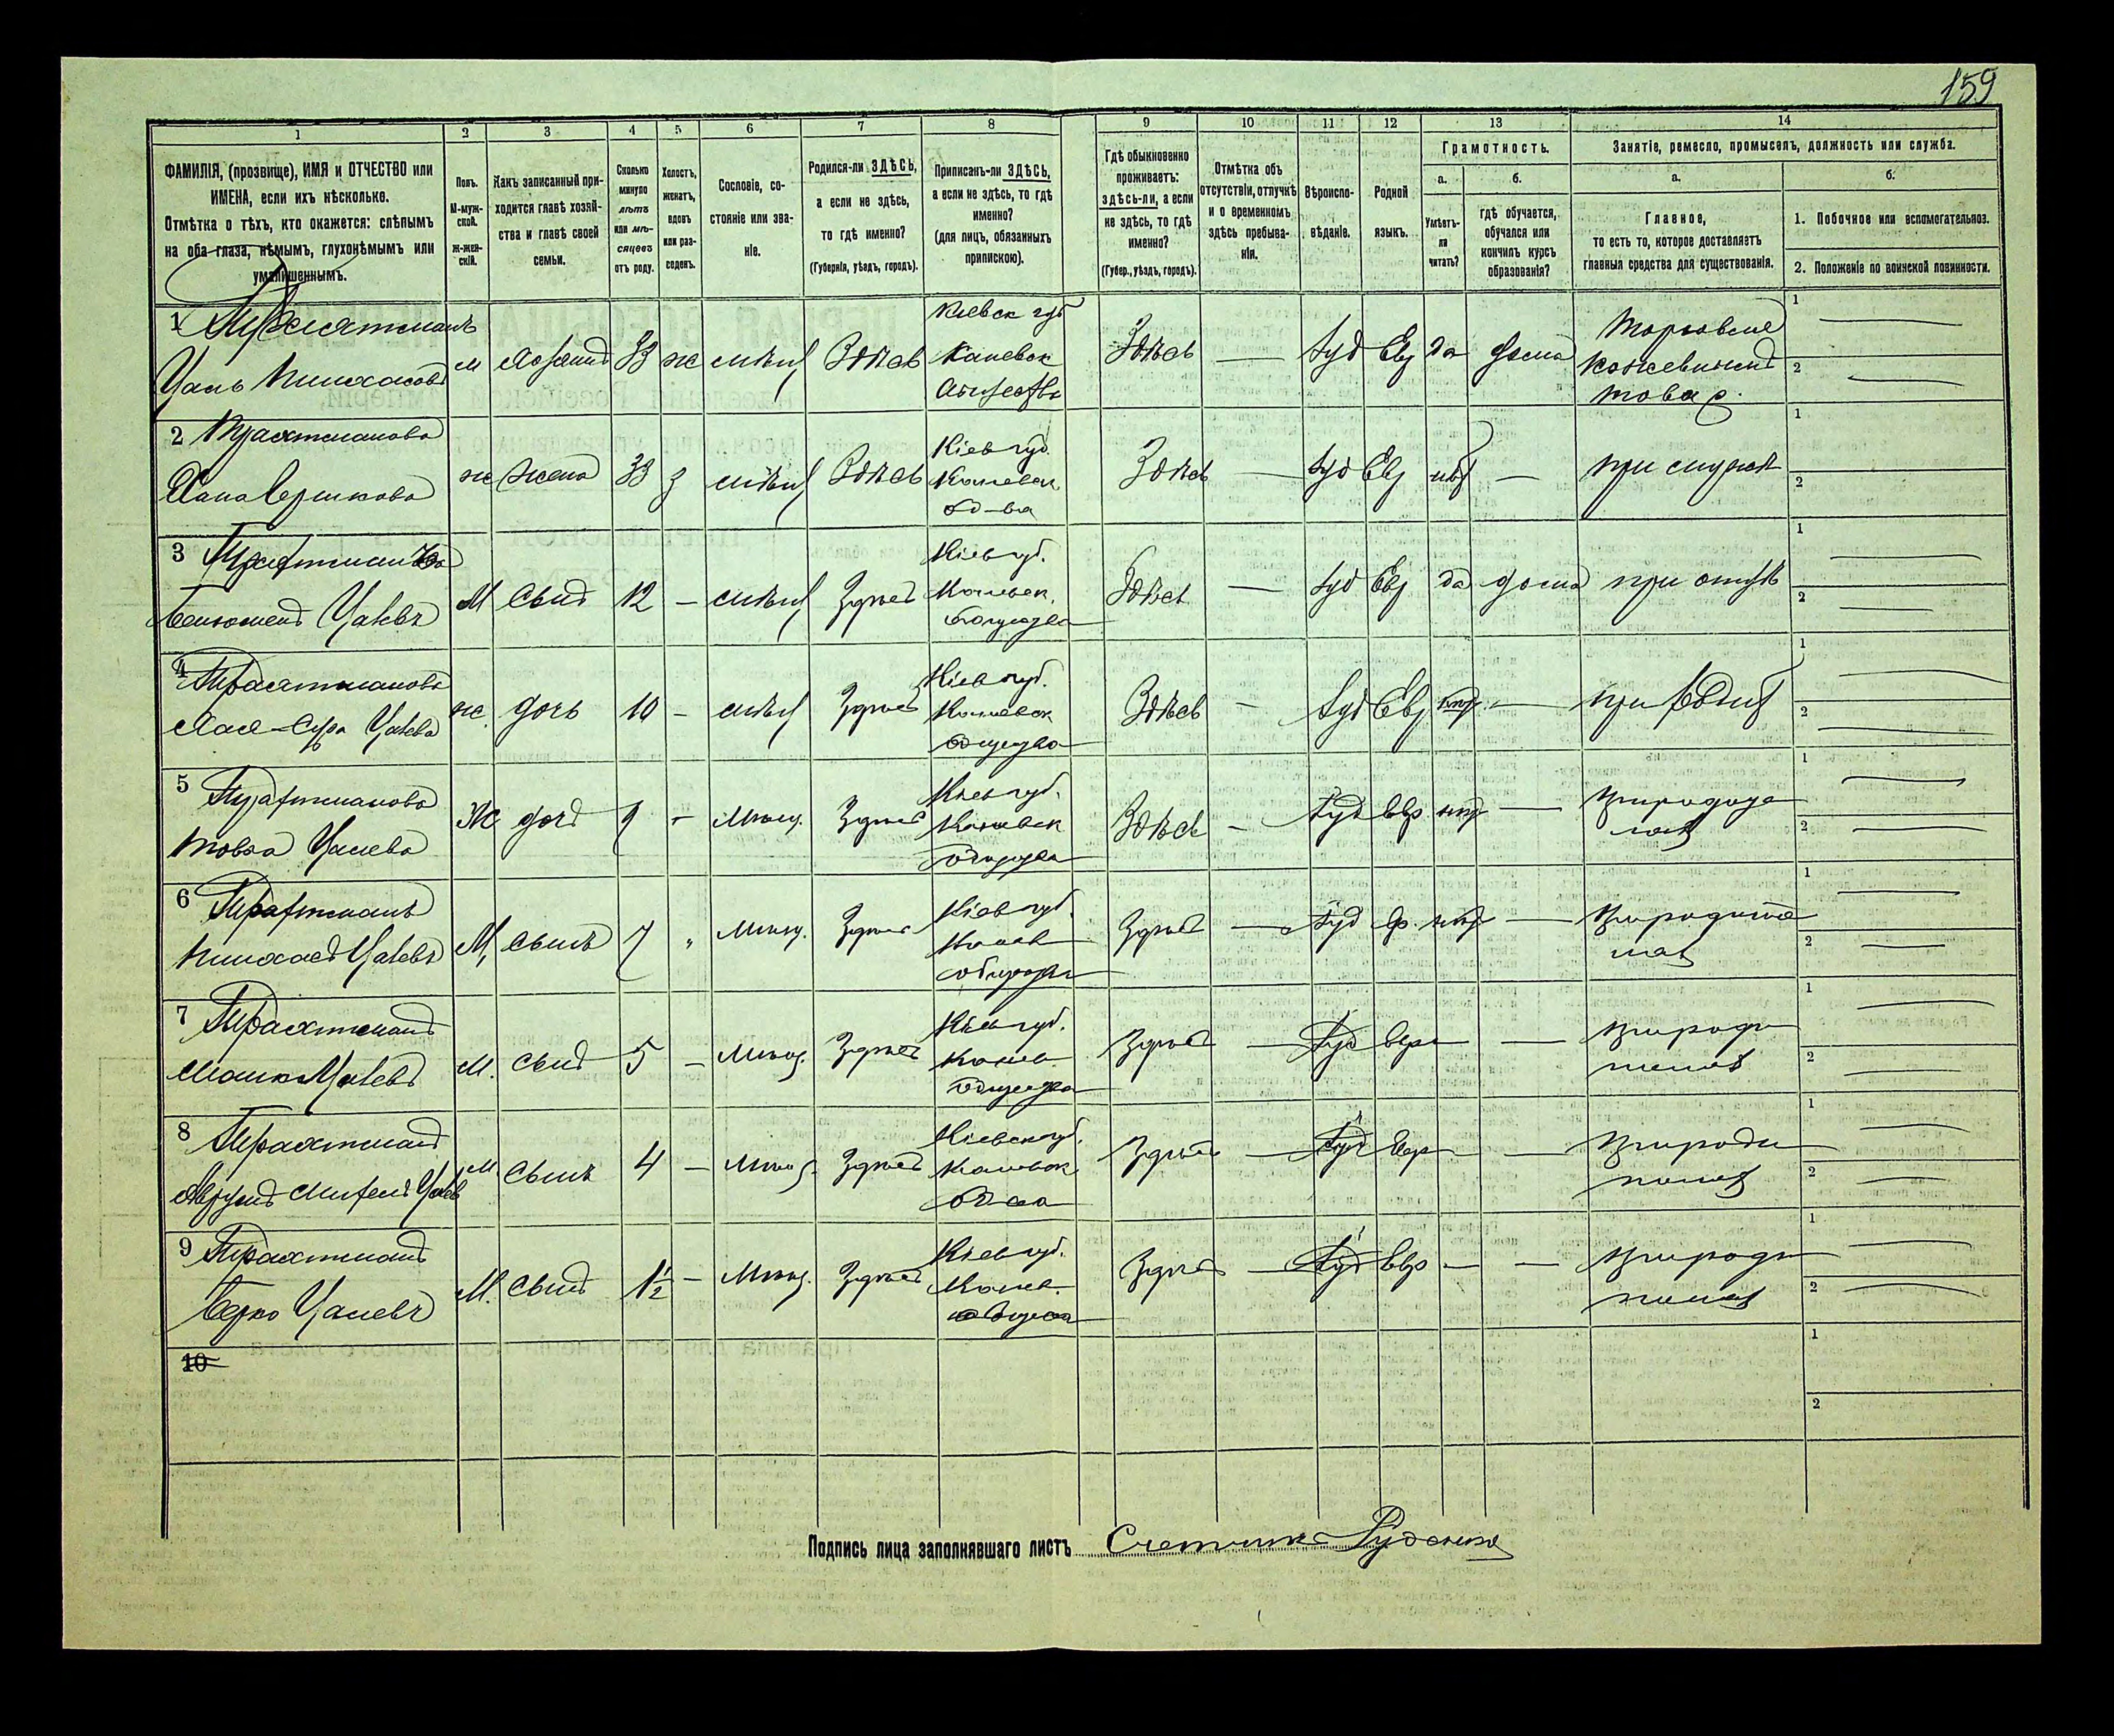 159
1 2 3 4 5 6 7 8 9 10 11 12 13 14
ФАМИЛІЯ, (прозвище), ИМЯ и ОТЧЕСТВО или
ИМЕНА, если ихъ нѣсколько.
Отмѣтка о тѣхъ, кто окажется: слѣпымъ
на оба глаза, нѣмымъ, глухонѣмымъ или
умалишеннымъ.
Полъ.
М-муж-
ской.
Ж-жен-
скій.
Какъ записанный при-
ходится главѣ хозяй-
ства и главѣ своей
семьи.
Сколько
минуло
лѣтъ
или мѣ-
сяцевъ
отъ роду.
Холостъ,
женатъ,
вдовъ
или раз-
веденъ.
Сословіе, со-
стояніе или зва-
ніе.
Родился-ли ЗДѢСЬ,
а если не здѣсь,
то гдѣ именно?
(Губернія, уѣздъ, городъ).
Приписанъ-ли ЗДѢСЬ,
а если не здѣсь, то гдѣ
именно?
(для лицъ, обязанныхъ
припискою).
Гдѣ обыкновенно
проживаетъ:
здѣсь-ли, а если
не здѣсь, то гдѣ
именно?
(Губер., уѣздъ, городъ).
Отмѣтка объ
отсутствіи, отлучкѣ
и о временномъ
здѣсь пребыва-
ніи.
Вѣроиспо-
вѣданіе.
Родной
языкъ.
Грамотность.
а.
Умѣетъ-
ли
читать?
б.
гдѣ обучается,
обучался или
кончилъ курсъ
образованія?
Занятіе, ремесло, промыселъ, должность или служба.
а.
Главное,
то есть то, которое доставляетъ
главныя средства для существованія.
б.
1. Побочное или вспомогательное.
2. Положеніе по воинской повинности.
1 Трахтманъ
Цаль Пинхасовъ
м Хозяинъ 33 ж Здѣсь
Кіевск губ
Каневск
Здѣсь Іуд Евр да дома
Торговля
кожевеннымъ
товар.
1
2
2 Трахтманова
Хана Вершкова
ж жена 33 з Здѣсь
Кіев губ.
Каневск.
об-ва
Здѣсь Іуд Евр нѣт при мужѣ
1
2
3 Трахтманъ
Беньюменъ Цалевъ
М Сынъ 12 Здѣсь
Кіев губ.
Каневск.
общества
Здѣсь Іуд Евр да дома при отцѣ
1
2
4 Трахтманова
Хая-Сура Цалева
ж. дочь 10 Здѣсь
Кіев губ.
Каневск
общества
Здѣсь Іуд Евр нѣт.
1
2
5 Трахтманова
Товба Цалева
Ж дочь 9 Мѣщ. Здѣсь
Кіев губ.
Каневск
общества
Здѣсь Іуд Евр нѣт
1
2
6 Трахтманъ
Пинхасъ Цалевъ
М, сынъ 7 Мѣщ. Здѣсь
Кіев губ.
Канев
общества
Здѣсь Іуд Ев. нѣт
1
2
7 Трахтманъ
Мошко Цалевъ
М. сынъ 5 Мѣщ. Здѣсь
Кіев губ.
Канев
общества
Здѣсь Іуд Евр
1
2
8 Трахтманъ
м сынъ 4 Мѣщ. Здѣсь
Кіевск губ.
Каневск
Здѣсь Іуд Евр
1
2
9 Трахтманъ
Берко Цалевъ
М. сынъ 1½ Мѣщ. Здѣсь
Кіев губ.
Канев.
Здѣсь Іуд Евр
1
2
10
1
2
Подпись лица заполнявшаго листъ Счетчикъ